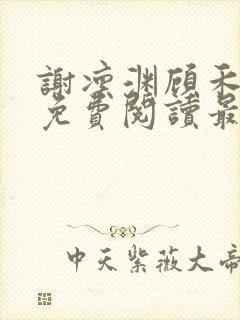 謝凛淵顾禾
免費閱讀最
中天紫薇大帝